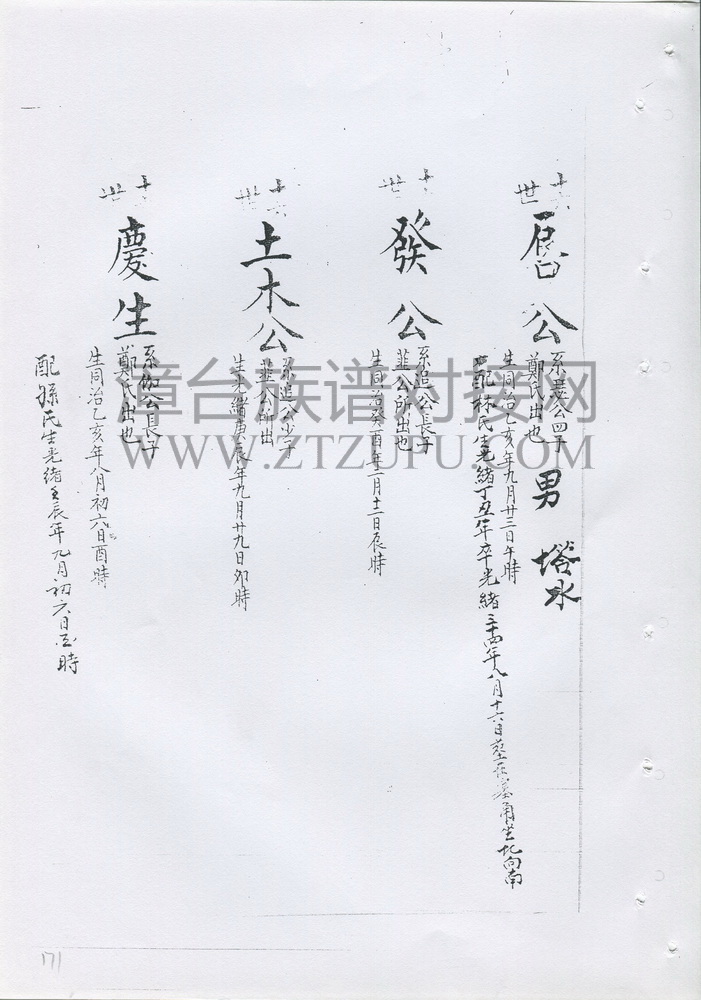 十六世
公
系養公四子
鄭氏出也
生同治乙亥年九月廿三日午時
配林氏生光緒丁丑年卒光緒三十四年八月十六日 坐北向南
男 塔水
世
發公
系追公長子
韮公所出也
生同治癸酉年二月十二日辰時
十六世
土木公
系追公少子
韮公所出
生光緒庚辰年九月廿九日卯時
十世
慶生
公長子
鄭氏出也
生同治乙亥年八月初六日酉時
配孫氏生光緒壬辰年九月初六日 時
漳台族谱对接网
WWW.ZTZUPU.COM
171